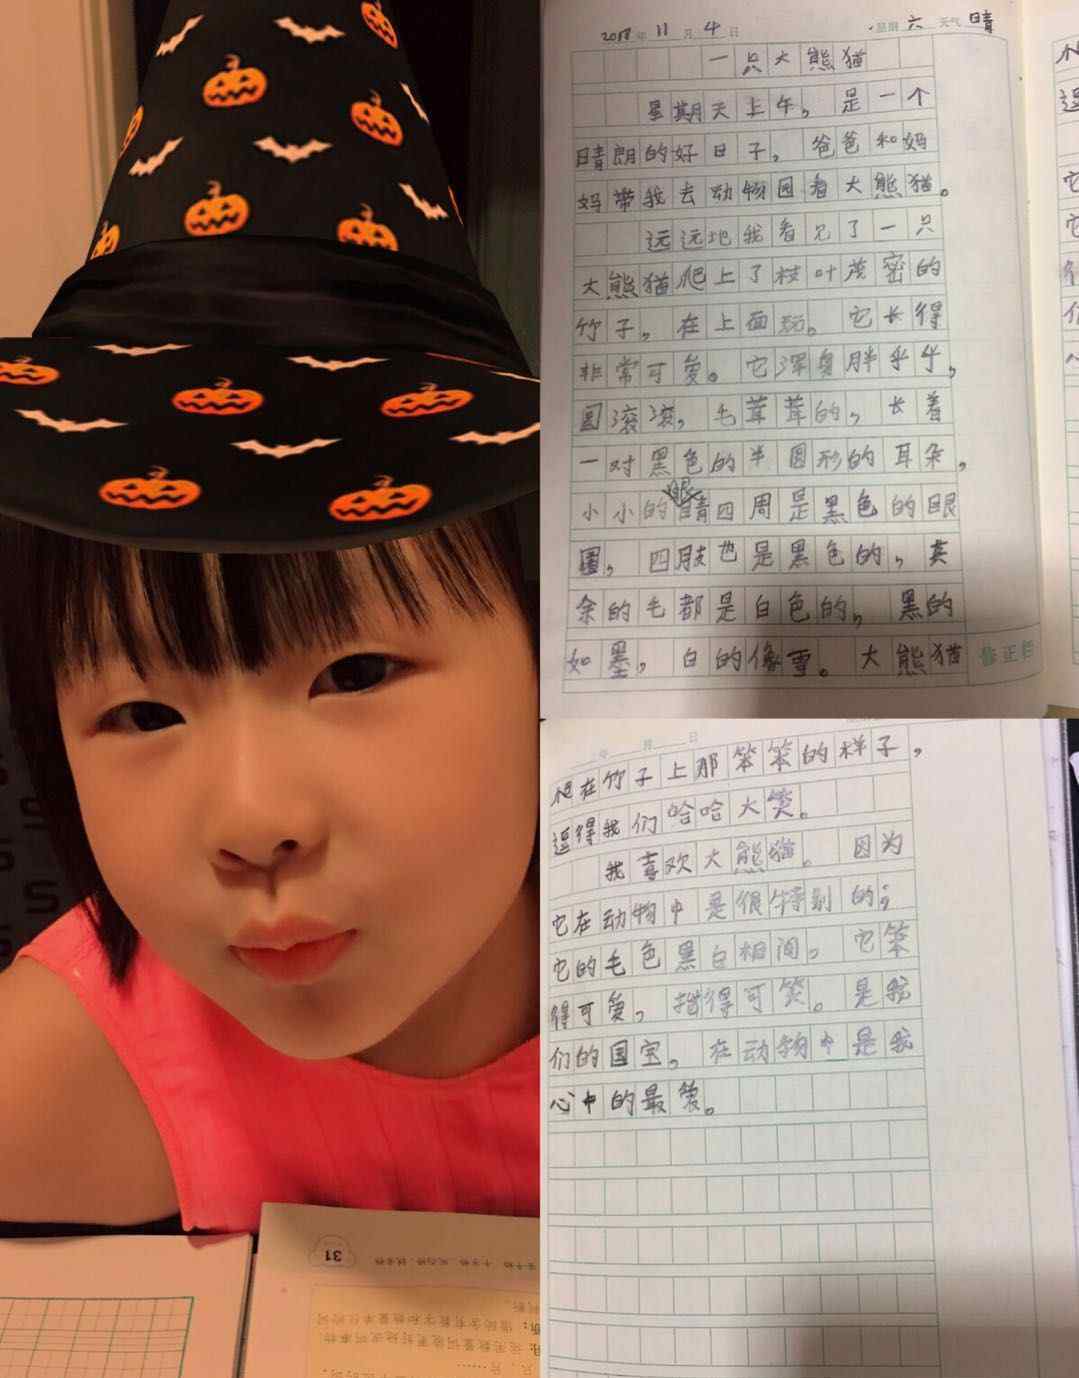 2017年11月4日 星期六 天气晴
一只大熊猫
星期天上午，是一个
晴朗的好日子，爸爸和妈
妈带我去动物园看大熊猫。
远远地我看见了一只
大熊猫爬上了枝叶茂密的
竹子，在上面玩。它长得
非常可爱。它浑身胖乎乎，
圆滚滚，毛茸茸的，长着
一对黑色的半圆形的耳朵，
小小的眼睛四周是黑色的眼
圈，四肢也是黑色的，其
余的毛都是白色的，黑的
如墨，白的像雪。大熊猫
修正栏
年 月 日
爬在竹子上那笨笨的样子，
逗得我们哈哈大笑。
我喜欢大熊猫。因为
它在动物中是很特别的；
它的毛色黑白相间。它笨
得可爱，得可笑。是我
们的国宝。在动物中是我
心中的最爱。
31